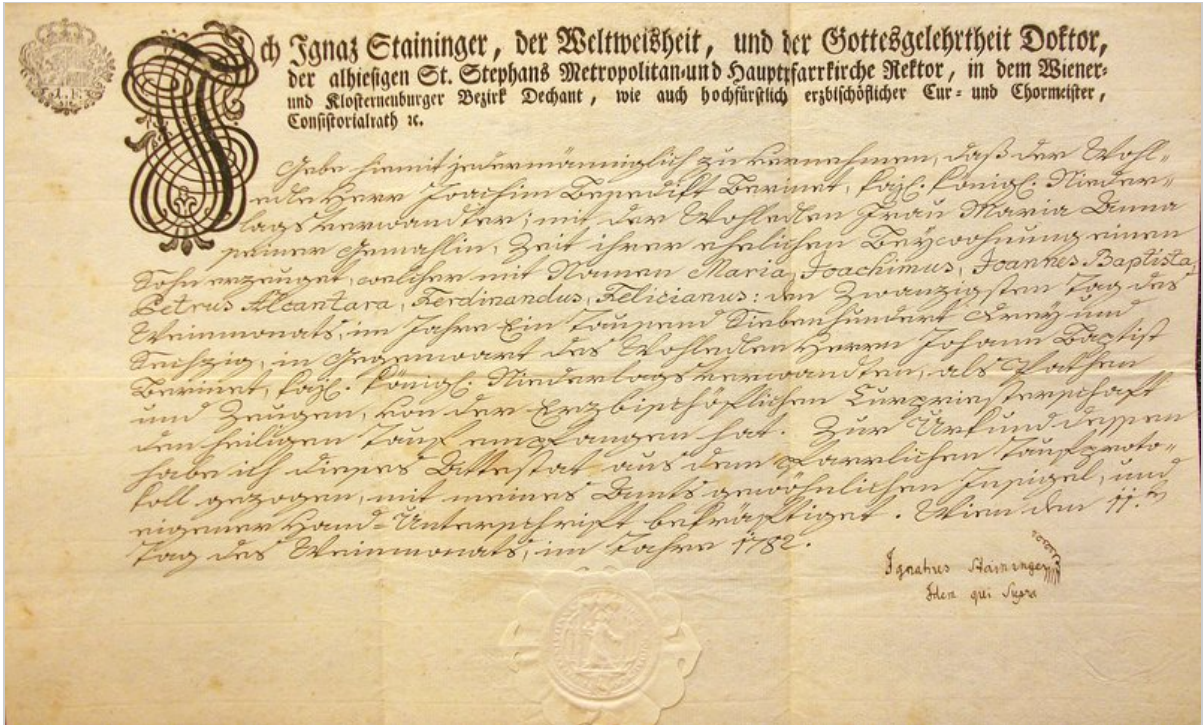 Ich Ignaz Staininger, der Weltweisheit, und der Gottesgelehrtheit Doktor,
der alhiesigen St. Stephans Metropolitan-und Hauptpfarrkirche Rektor, in dem Wiener-
und Klosterneuburger Bezirk Dechant, wie auch hochfürstlich erzbischöflicher Cur- und Chormeister,
Consistorialrath ꝛc.
Gebe hiemit jedermänniglich zu vernehmen, daß der Wohl-
edle Herr Joachim Benedikt Bevinet, kais. königl. Nieder-
lagsverwandter; mit der Wohledlen Frau Maria Anna
seiner Gemahlin, Zeit ihrer ehelichen Beywohnung einen
Sohn erzeuget, welcher mit Namen Maria, Joachimus, Joannes Baptista,
Petrus Alcantara, Ferdinandus, Felicianus: den Zwanzigsten Tag des
Weinmonats, im Jahre Ein Tausend Siebenhundert Drey und
Sechzig, in Gegenwart des Wohledlen Herrn Johann Baptist
Bevinet, kais. königl. Niederlagsverwandten, als Pathen
und Zeugen, von der Erzbischöflichen Curpriesterschaft
den heiligen Tauf empfangen hat. Zur Urkund dessen
habe ich dieses Attestat aus dem pfarrlichen Taufproto-
koll gezogen, mit meines Amts gewöhnlichen Insigel, und
eigener Hand-Unterschrift bekräftiget. Wien den 11.ten
Tag des Weinmonats, im Jahre 1782.
Ignatius Staininger
Idem qui Supra